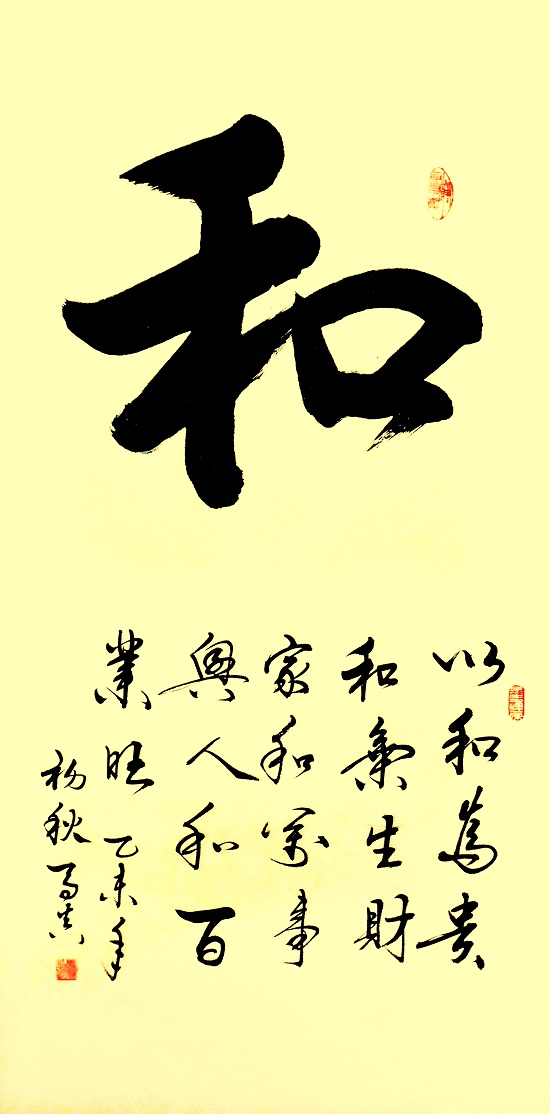 和
以和為貴
和氣生財
家和萬事
興人和百
業旺乙未年
初秋